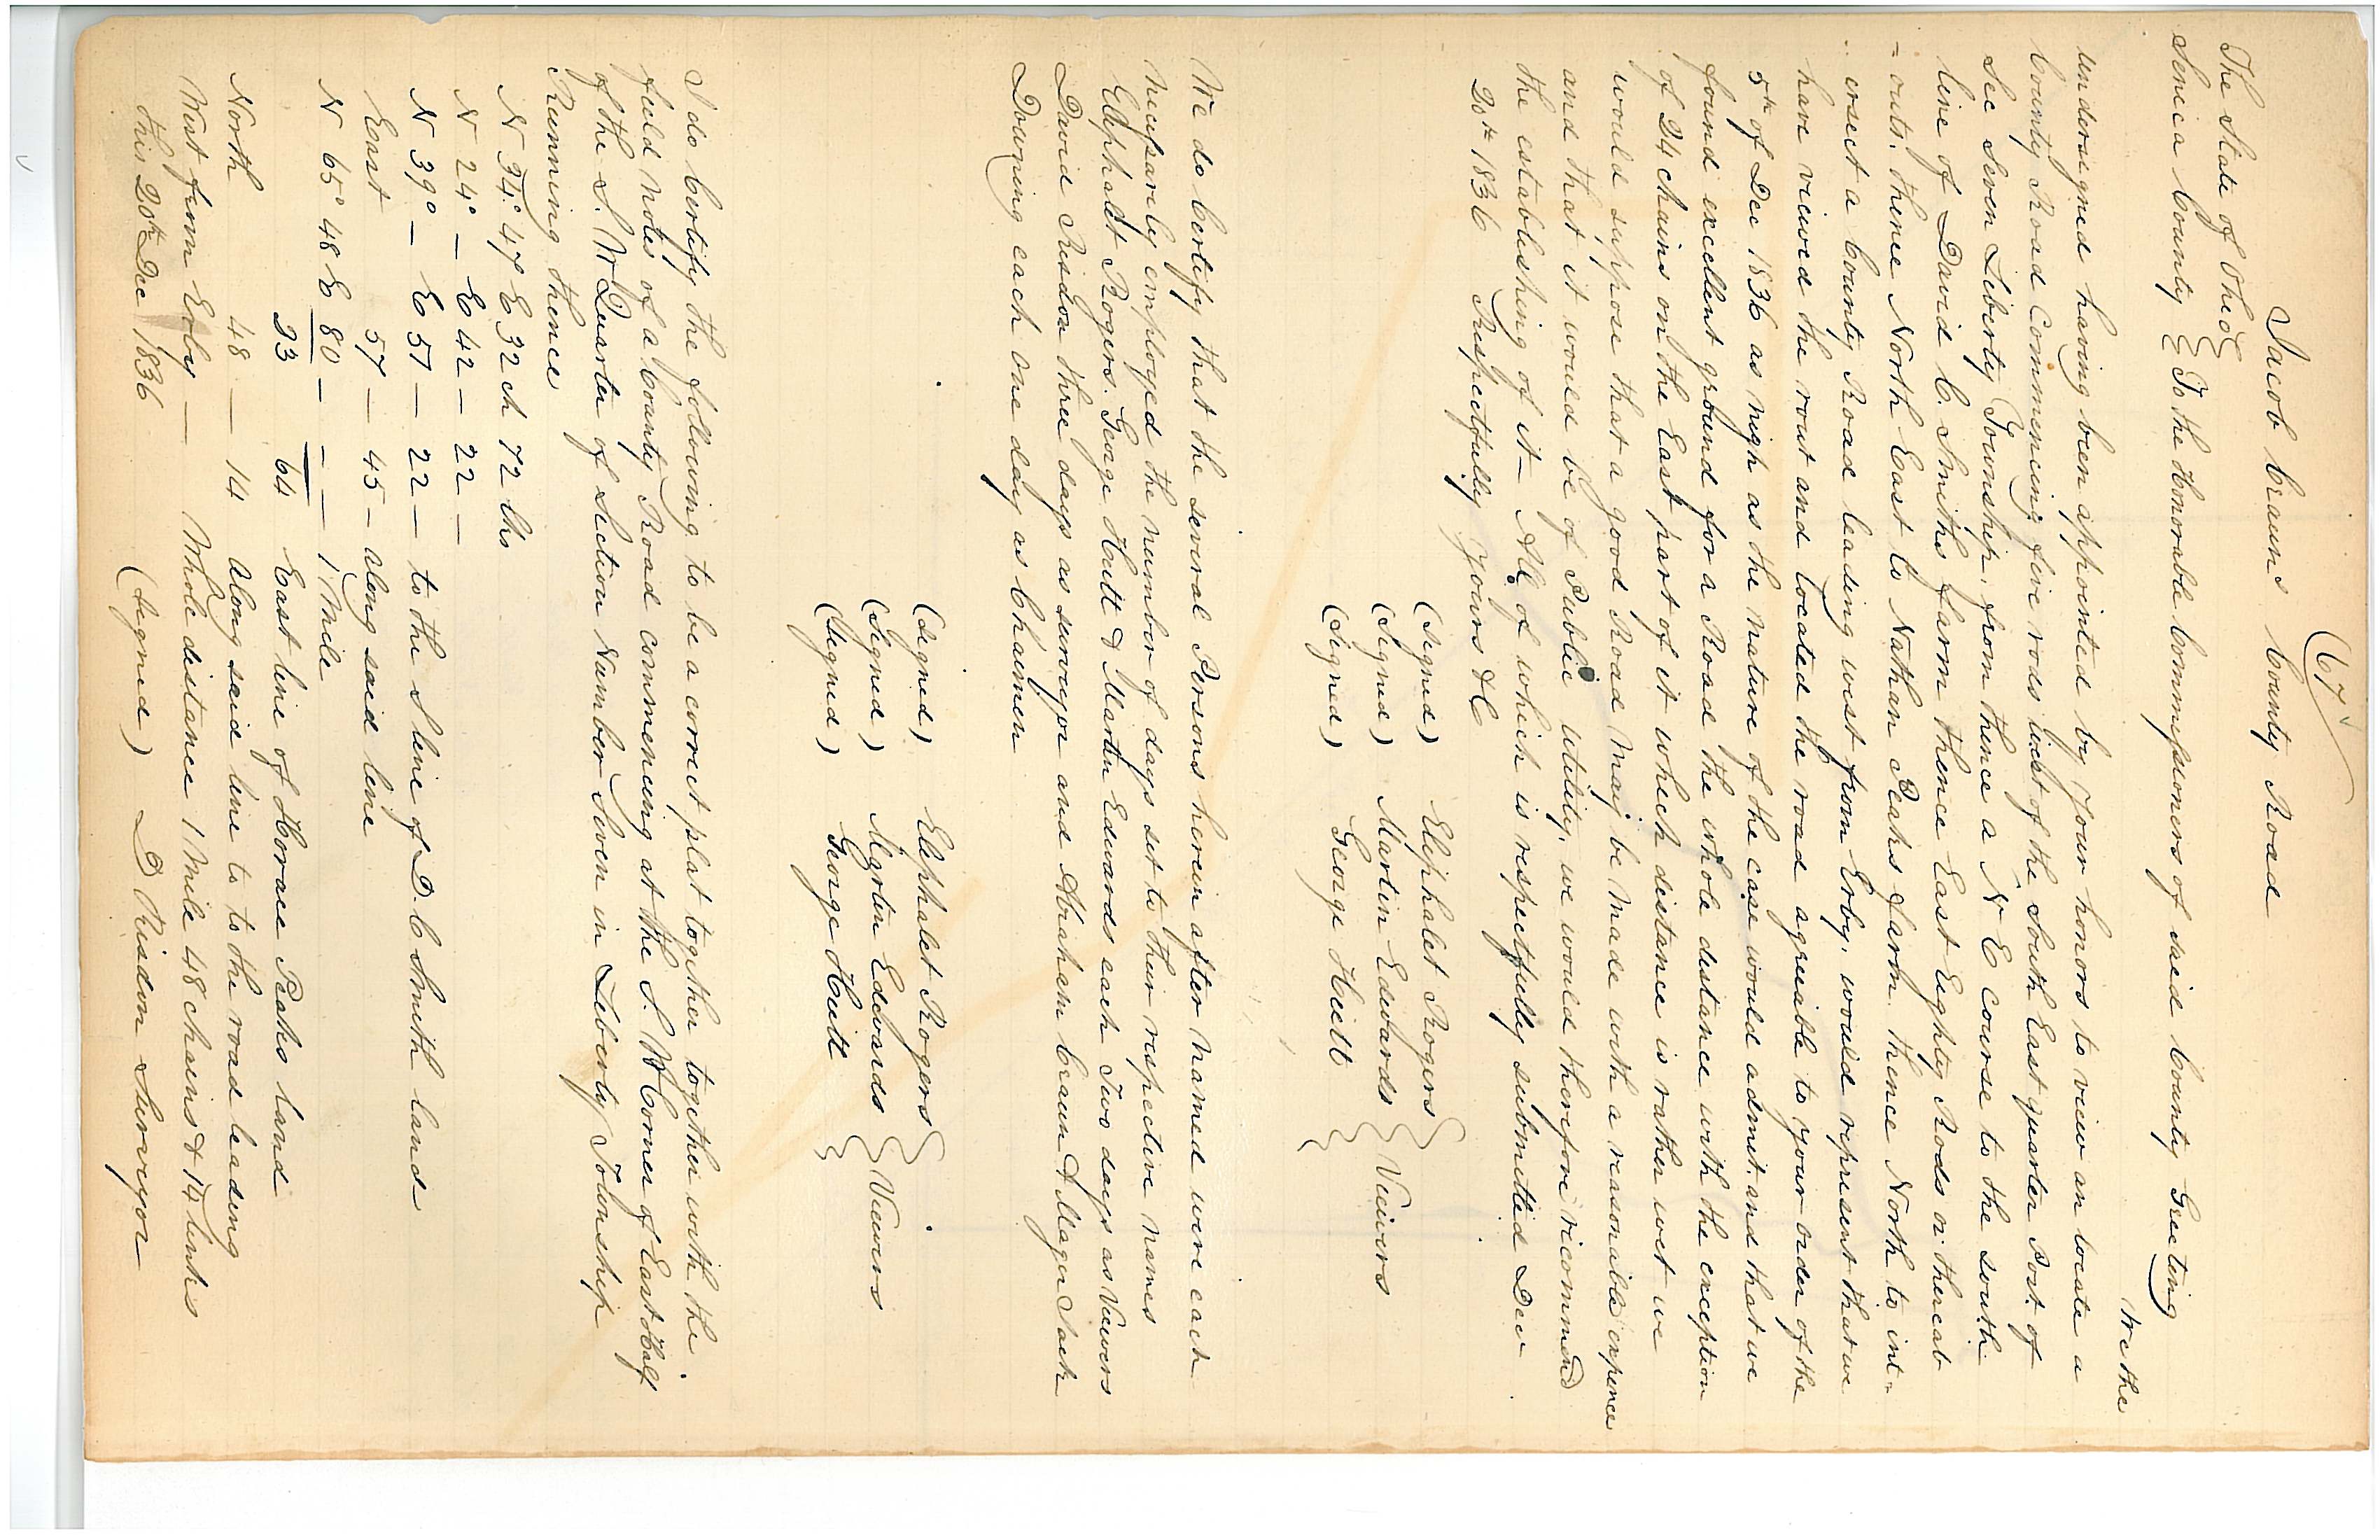 (67
Jacob Crauns County Road
The State of Ohio
Seneca County } To the Honorable Commissioners of said County Greeting
We the
undersigned having been appointed by your honors to view an locate a
County Road Commencing five rods west of the South East quarter Post of
Sec Seven Liberty Township, from thence a N E course to the south
line of David C. Smiths farm thence East Eighty Rods or thereab
- outs. thence North East to Nathan Peaks farm. thence North to int=
ersect a County Road leading west from Eoby. would represent that we
have viewed the rout and located the road agreeable to your order of the
5th of Dec 1836 as nigh as the nature of the case would admit. and that we
found excellent ground for a Road the whole distance with the exception
of 24 chains on the East part of it which distance is rather wet we
would suppose that a good Road may be made with a reasonable expence
and that it would be of Public utility, we would therefore recommend
the establishing of it - All of which is respectfully submitted Dec
20th 1836 Respectfully yours &C
(Signed) Eliphalet Rogers
(Signed) Martin Edwards } Viewers
(Signed) George Huitt
We do Certify that the several Persons herein after named were each
necessarily employed the number of days set to their respective names
Eliphalet Rogers. George Huitt & Martin Edwards each Two days as Viewers
David Risdon three days as surveyor and Abraham Craun & Mager Jack
Downing each one day as Chaimen
(Signed) Eliphalet Rogers
(Signed) Martin Edwards } Viewers
(Signed) George Huitt
I do Certify the following to be a correct plat together together with the
field notes of a County Road commencing at the S. W Corner of East Half
of the S. W Quarter of Section Number Seven in Liberty Township
Running thence
N 34° 47 E 32 ch 72 lks
N 24° - E 42 - 22 -
N 39° - E 51 - 22 - to the S line of D. C Smith land
East 57 - 45 - along said line
N 65° 48 E 80 - - - 1 Mile
23 64 East line of Horace Peaks land
North 48 - 14 along said line to to the road leading
West from Eoby - Whole distance 1 Mile 48 chains & 14 links
this 20th Dec 1836
(Signed) D Risdon Surveyor